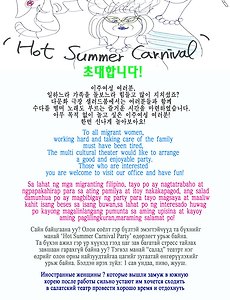 "Hot Summer Carnival"
초대합니다!
이주여성 여러분,
일하느라 가족을 돌보느라 힘들고 많이 지치셨죠?
다문화 극장 샐러드붐에서는 여러분들과 함께
수다를 떨며 노래도 부르는 즐거운 시간을 마련하였습니다.
아무 목적 없이 놀고 싶은 이주여성 여러분!
한번 신나게 놀아보아요!
To all migrant women,
working hard and taking care of the family
must have been tired,
The multi cultural theater would like to arrange
a good and enjoyable party,
Those who are interested
you are welcome to visit our office and have fun!
Sa lahat ng mga migranting filipino, tayo po ay nagtatrabaho at
ngpapakahirap para sa ating pamilya at itoy nakakapagod, ang salad
damunhua po ay magbibigay ng party para tayo magsaya at maaliw
kahit isang beses sa isang buwan,sa lahat po ng interesado huwag
po kayong magalinlangang pumunta sa aming upisina at kayoy
aming pagililingkuran,maraming salamat po!
Сайн байцгаана уу? Олон гэр бүлтэй эмэгтэйчүүд та бүхнийг
манай "Hot Summer Carnival Party" өдөрлөгт урьж байна.
Та бүхэн ажил гэр үр хүүхэд гээд цаг зав багатай стресс тайлах
Иностранные женщины ! которые вышли замуж в южную
корею после работы сильно устают им хочется сходить
в салатский театр провести хорошо время и отдохнуть